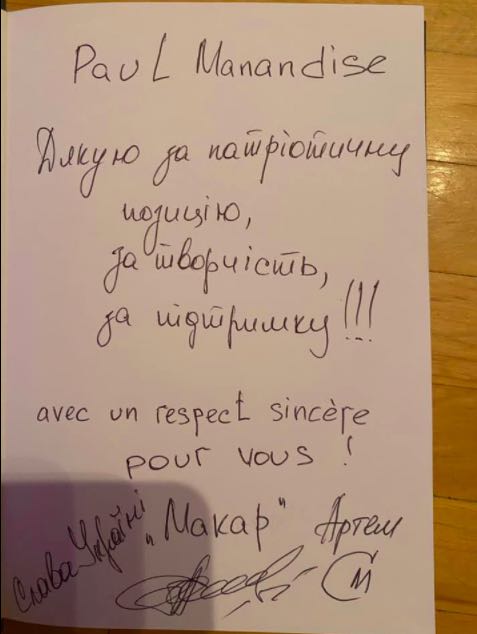 Paul Manandise
Дякую за патріотичну
позицію,
за творчість,
за підтримку!!!
avec un respect sincère
pour vous !
Слава Україні
„Макар" Артем
СМ